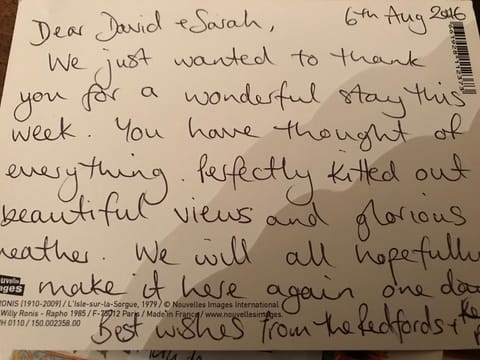 6th Aug 2016
Dear David + Sarah,
We just wanted to thank
you for a wonderful stay this
week. You have thought of
everything. Perfectly kitted out
beautiful views and glorious
weather. We will all hopefully
make it here again one day
Best wishes from the Redfords +
Nouvelles
Images
RONIS (1910-2009) / L'Isle-sur-la-Sorgue, 1979 / © Nouvelles Images International
Willy Ronis - Rapho 1985 / F-75012 Paris / Made in France / www.nouvellesimages.
PH 0110 / 150.002358.00